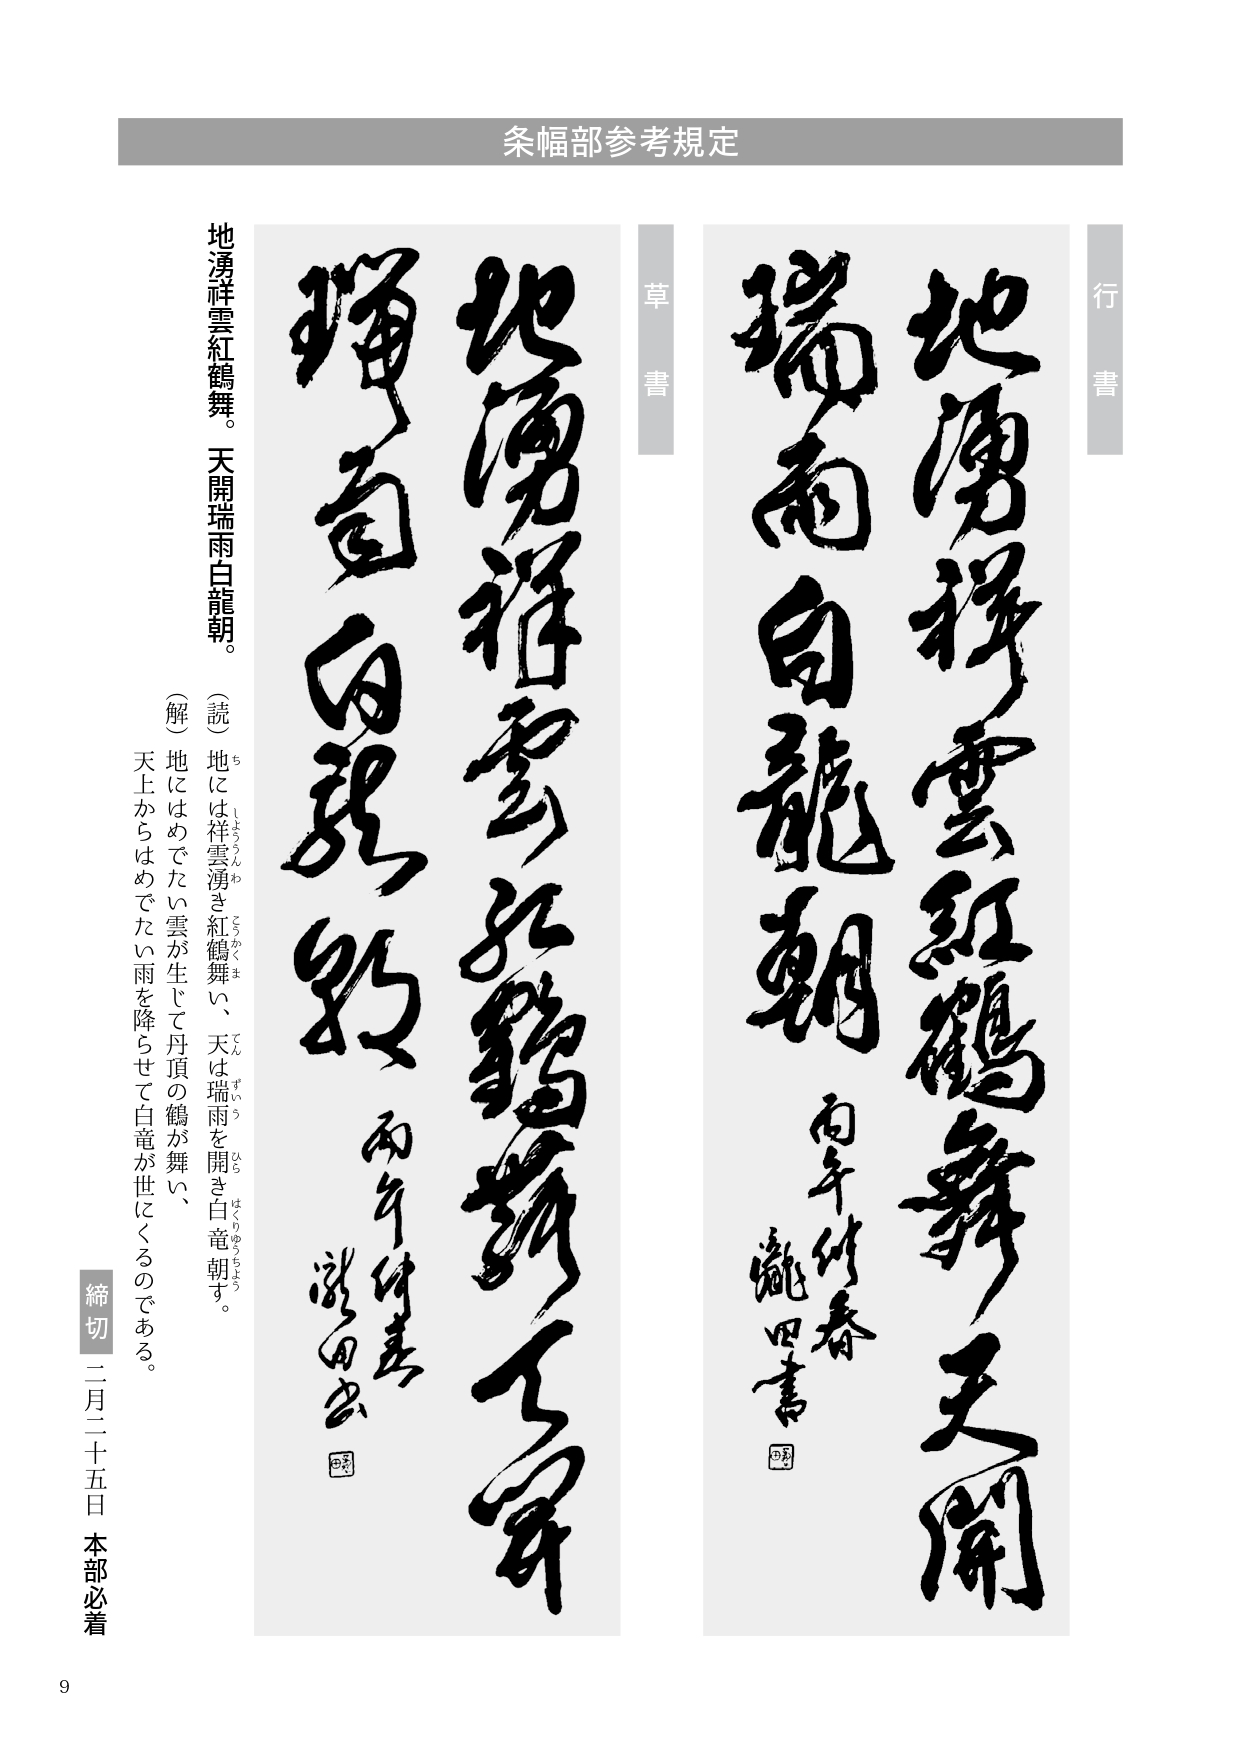 条幅部参考規定
行書
地湧祥雲紅鶴舞天開
瑞雨白龍朝
丙午仲春
瀧田書
草書
地湧祥雲紅鶴舞天開
瑞雨白龍朝
丙午仲春
瀧田書
地湧祥雲紅鶴舞。天開瑞雨白龍朝。
（読）地には祥雲湧き紅鶴舞い、天は瑞雨を開き白竜朝す。
ち しょううん わ こうかくま てん ずいう ひら はくりゅうちょう
（解）地にはめでたい雲が生じて丹頂の鶴が舞い、
天上からはめでたい雨を降らせて白竜が世にくるのである。
締切 二月二十五日 本部必着
9